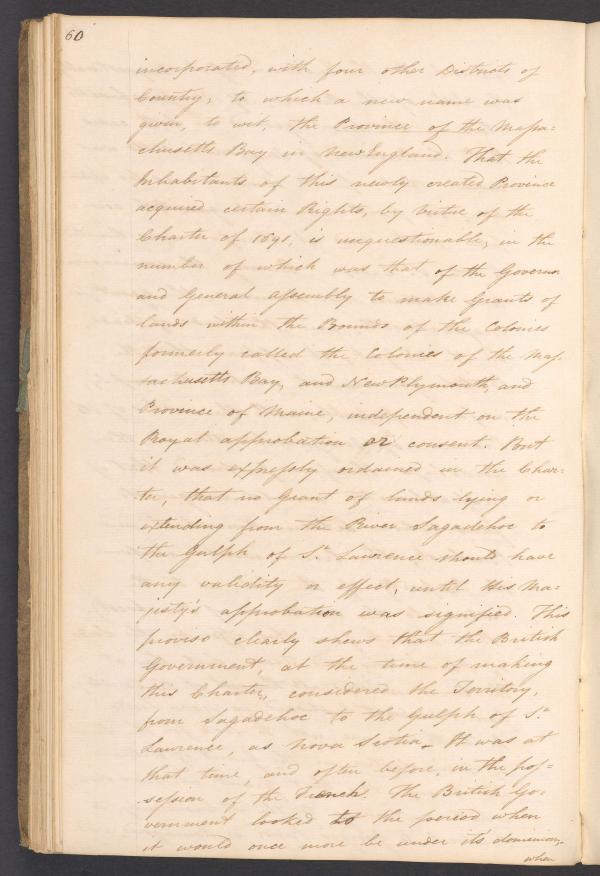 60
incorporated, with four other Districts of
Country, to which a new name was
given, to wit, the Province of the Massa=
chusetts Bay in New England. That the
Inhabitants of this newly created Province
acquired certain Rights, by Virtue of the
Charter of 1691, is unquestionable, in the
number of which was that of the Governor
and General Assembly to make Grants of
lands within the Bounds of the Colonies
formerly called the Colonies of the Mas-
sachusetts Bay, and New Plymouth, and
Province of Maine, independent on the
Royal approbation or consent. But
it was expressly ordained in the Char=
ter, that no Grant of lands lying or
extending from the River Sagadehoc to
the Gulph of St. Lawrence should have
any validity or effect, until His Ma=
jisty's approbation was signified. This
proviso clearly shews that the British
Government, at the time of making
this Charter, considered the Territory,
from Sagadehoc to the Gulph of St.
Lawrence, as Nova Scotia. It was at
that time, and often before, in the pos=
session of the French. The British Go-
vernment looked to the period when
it would once more be under its' dominion,
when